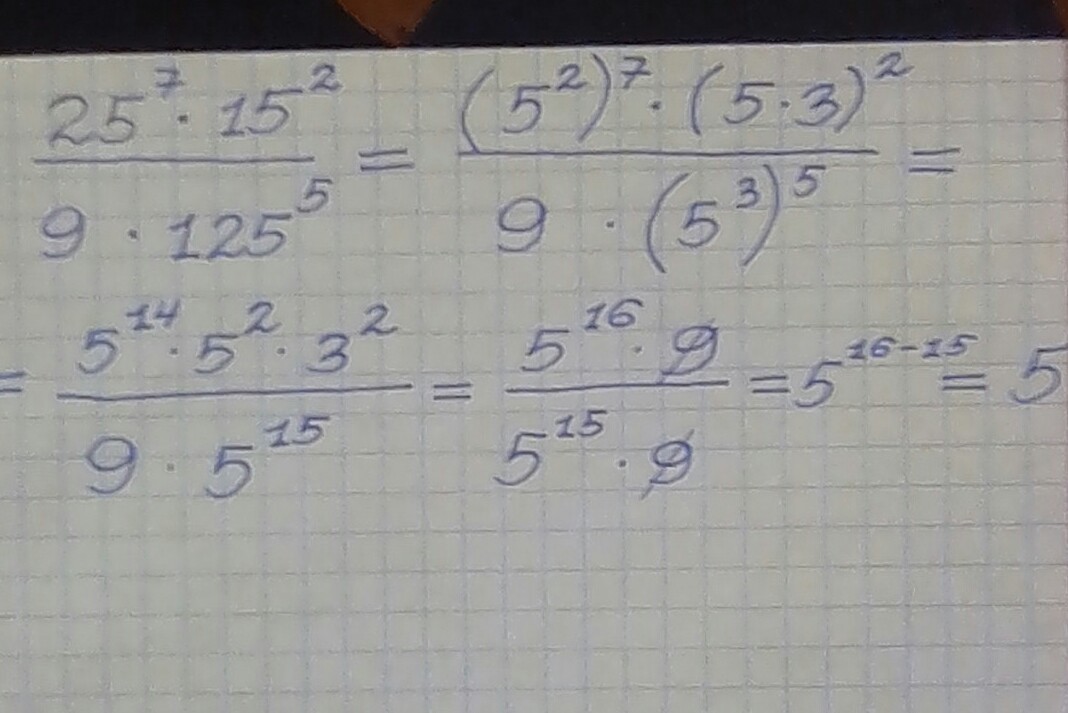 25⁷ · 15² / 9 · 125⁵ = (5²)⁷ · (5·3)² / 9 · (5³)⁵ =
= 5¹⁴ · 5² · 3² / 9 · 5¹⁵ = 5¹⁶ · 9 / 5¹⁵ · 9 = 5¹⁶⁻¹⁵ = 5